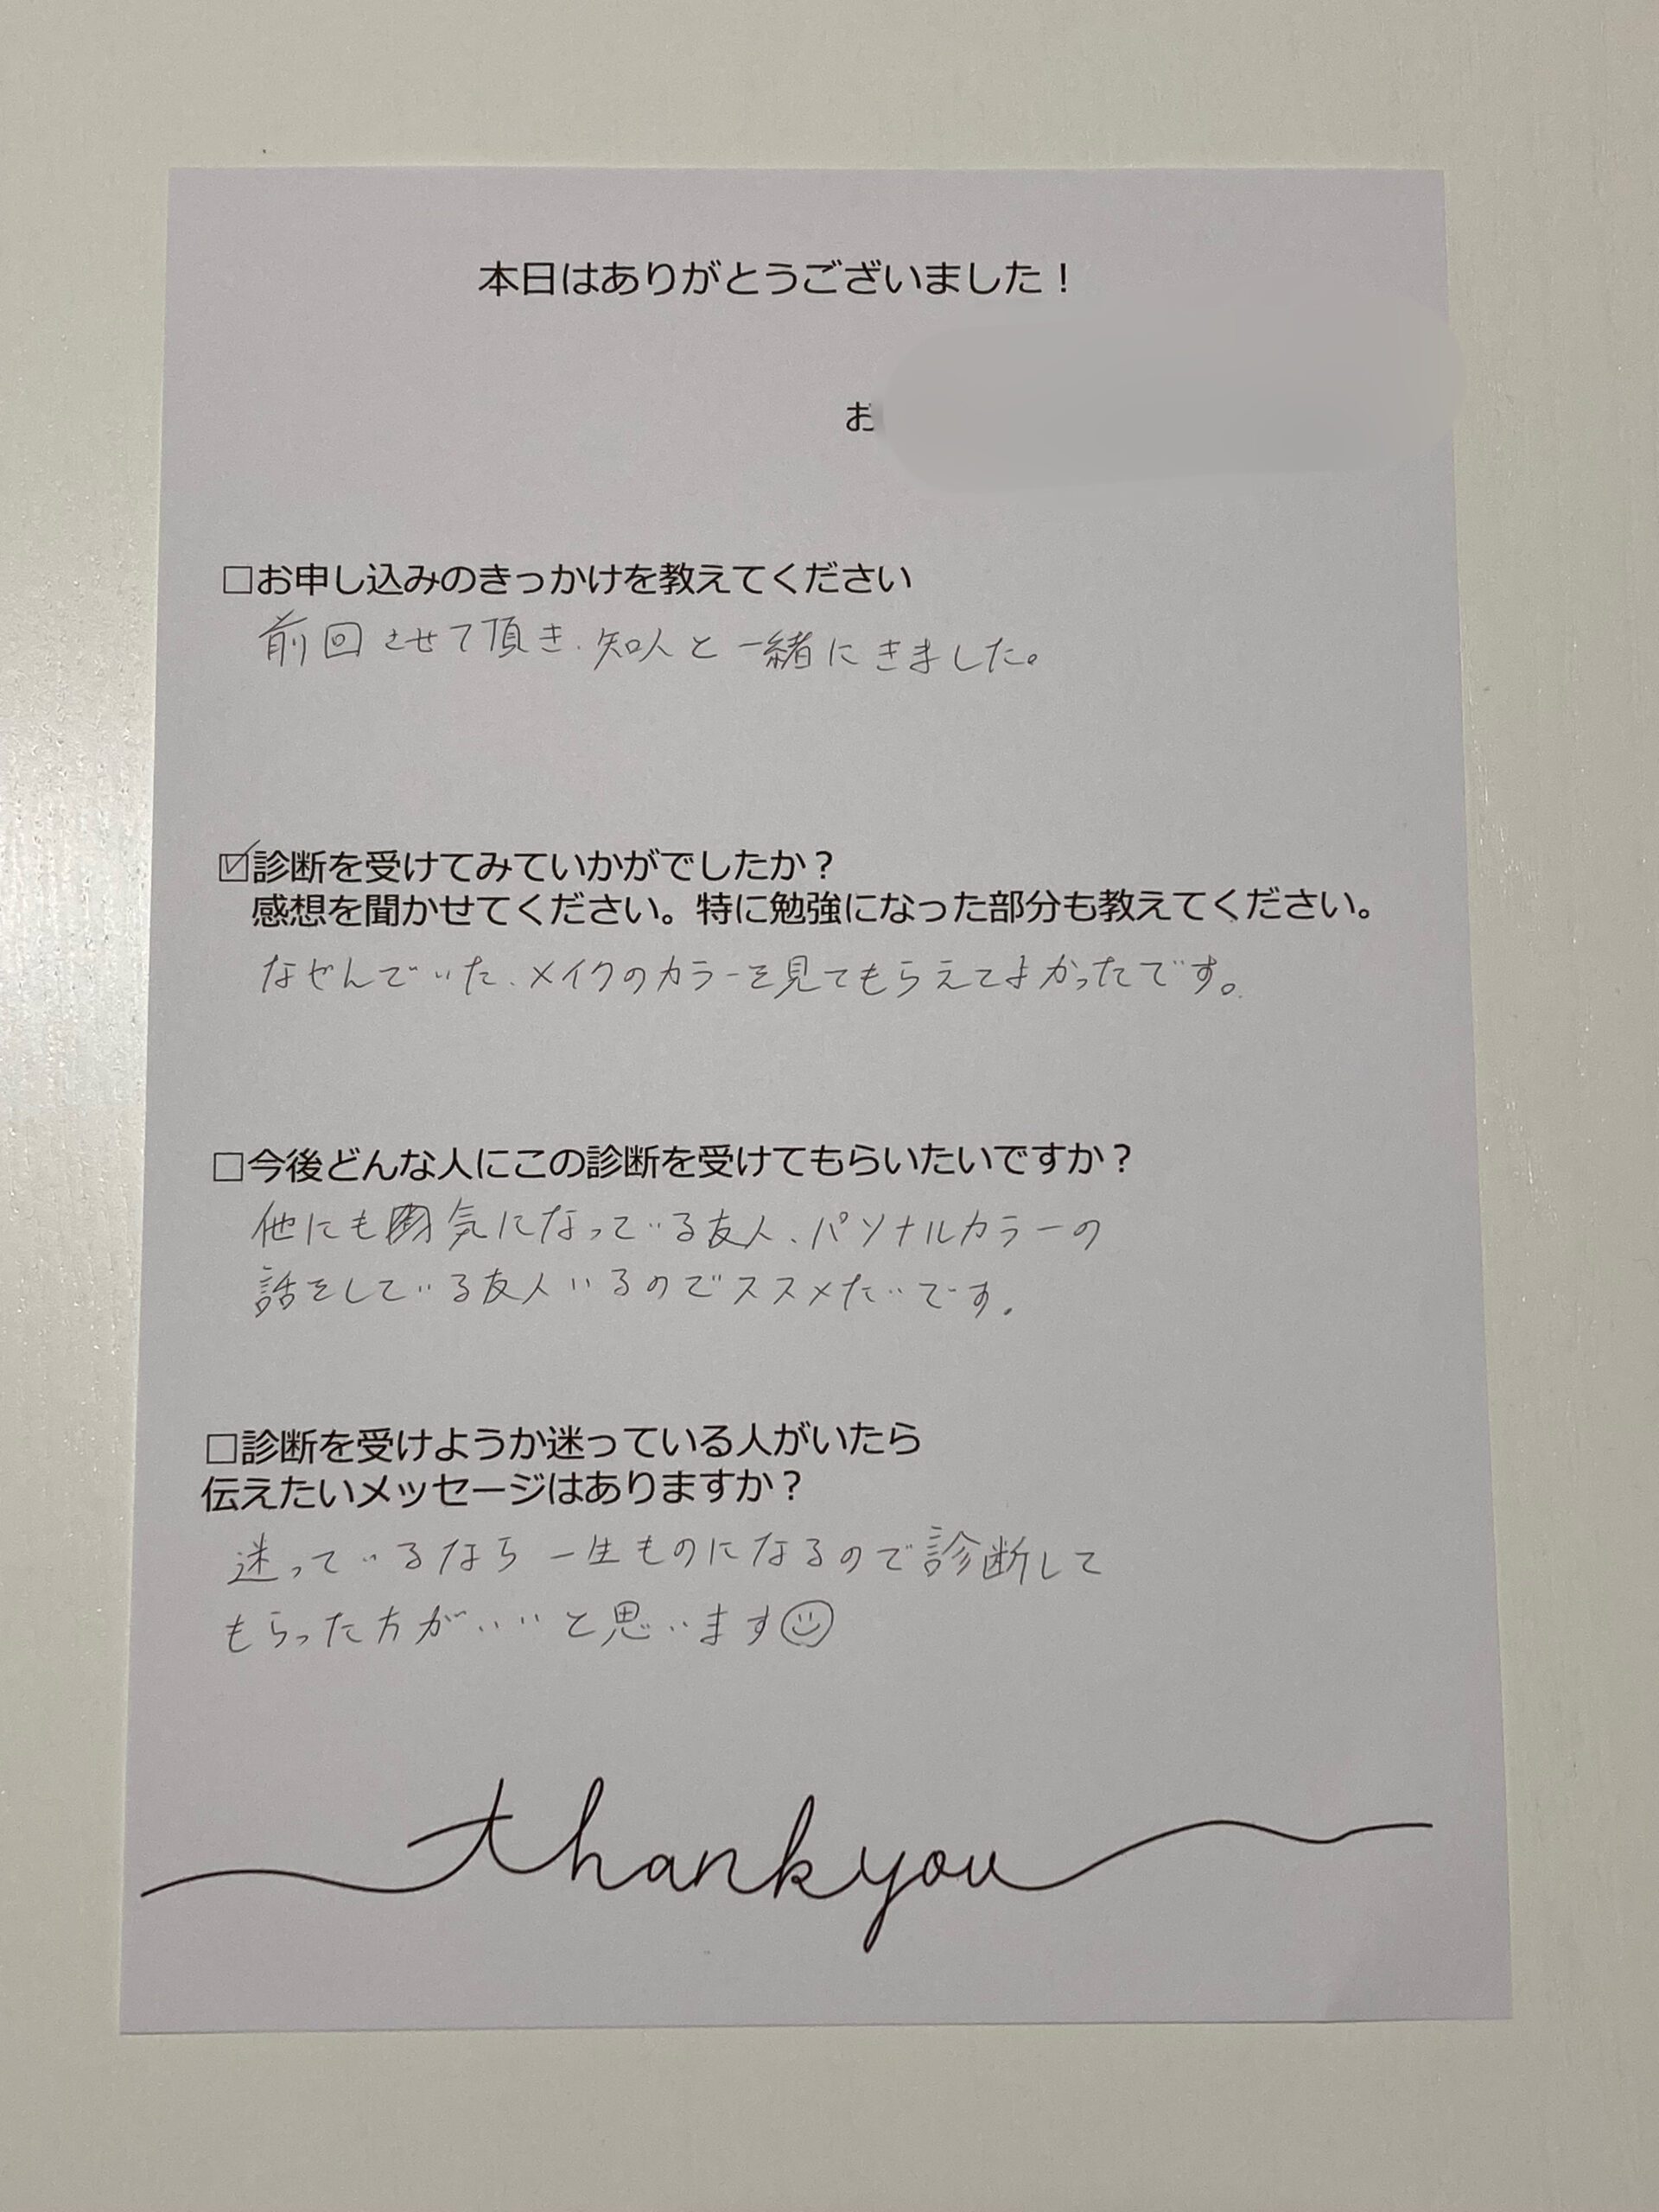 本日はありがとうございました！
お
□お申し込みのきっかけを教えてください
前回させて頂き、知人と一緒にきました。
☑診断を受けてみていかがでしたか？
感想を聞かせてください。特に勉強になった部分も教えてください。
なやんでいた、メイクのカラーを見てもらえてよかったです。
□今後どんな人にこの診断を受けてもらいたいですか？
他にも気になっている友人、パソナルカラーの
話をしている友人いるのでススメたいです。
□診断を受けようか迷っている人がいたら
伝えたいメッセージはありますか？
迷っているなら一生ものになるので診断して
もらった方がいいと思います☺
thank you